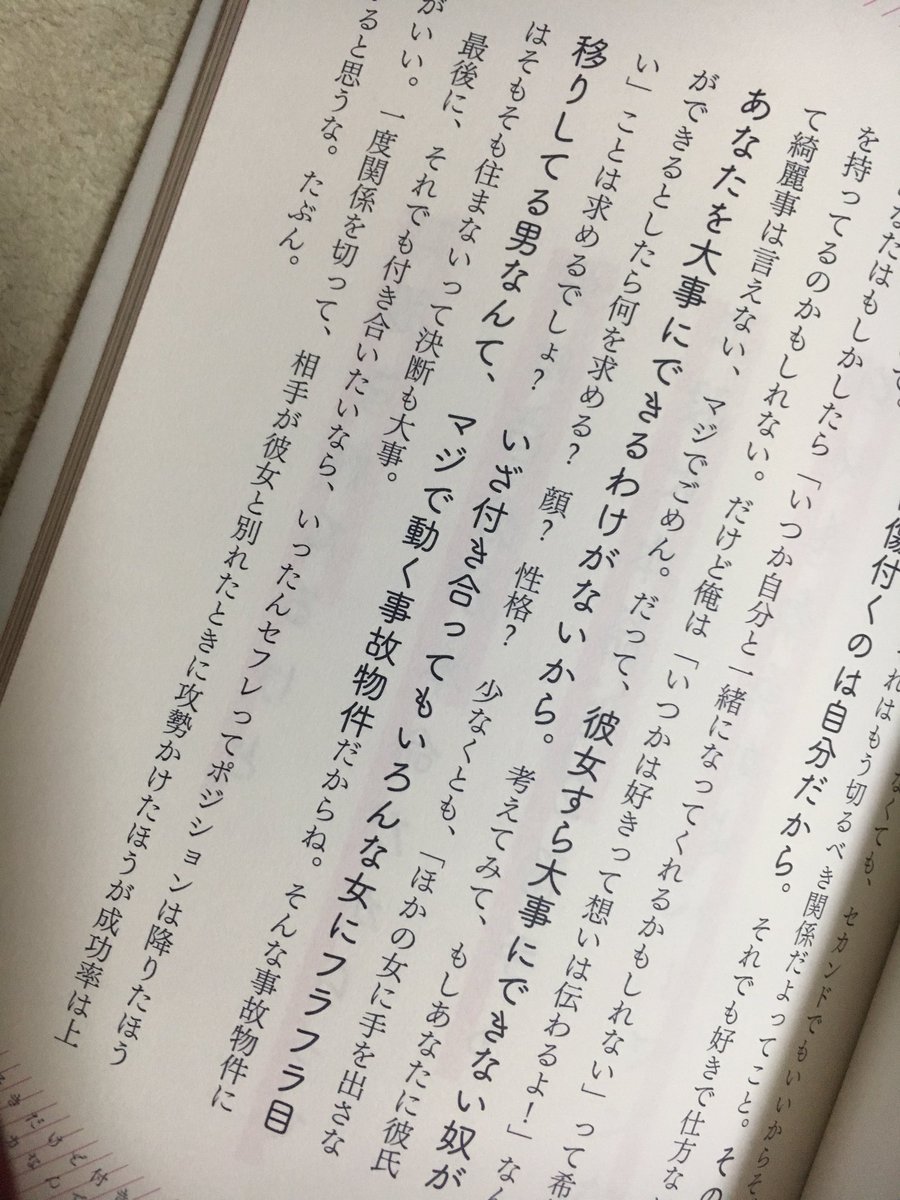 なくても、セカンドでもいいからそ
れはもう切るべき関係だよってこと。その
傷付くのは自分だから。それでも好きで仕方な
なたはもしかしたら「いつか自分と一緒になってくれるかもしれない」って希
を持ってるのかもしれない。だけど俺は「いつかは好きって想いは伝わるよ！」なん
て綺麗事は言えない、マジでごめん。だって、彼女すら大事にできない奴が
あなたを大事にできるわけがないから。考えてみて、もしあなたに彼氏
ができるとしたら何を求める？　顔？　性格？　少なくとも、「ほかの女に手を出さな
い」ことは求めるでしょ？　いざ付き合ってもいろんな女にフラフラ目
移りしてる男なんて、マジで動く事故物件だからね。そんな事故物件に
はそもそも住まないって決断も大事。
最後に、それでも付き合いたいなら、いったんセフレってポジションは降りたほう
がいい。一度関係を切って、相手が彼女と別れたときに攻勢かけたほうが成功率は上
ると思うな。たぶん。